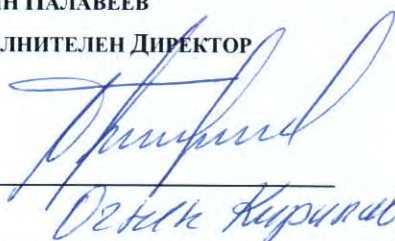 ин Палавеев
лнителен Директор
Огнян Кирилов